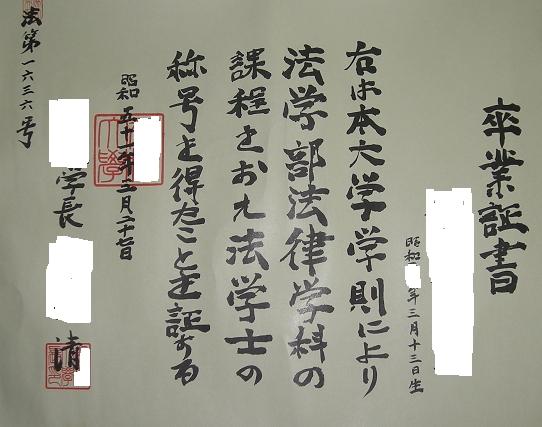 卒業証書
昭和 年三月十三日生
右は本大学学則により
法学部法律学科の
課程をおえ法学士の
称号を得たことを証する
昭和五十一年三月二十七日
学長
清
法第一六三六号